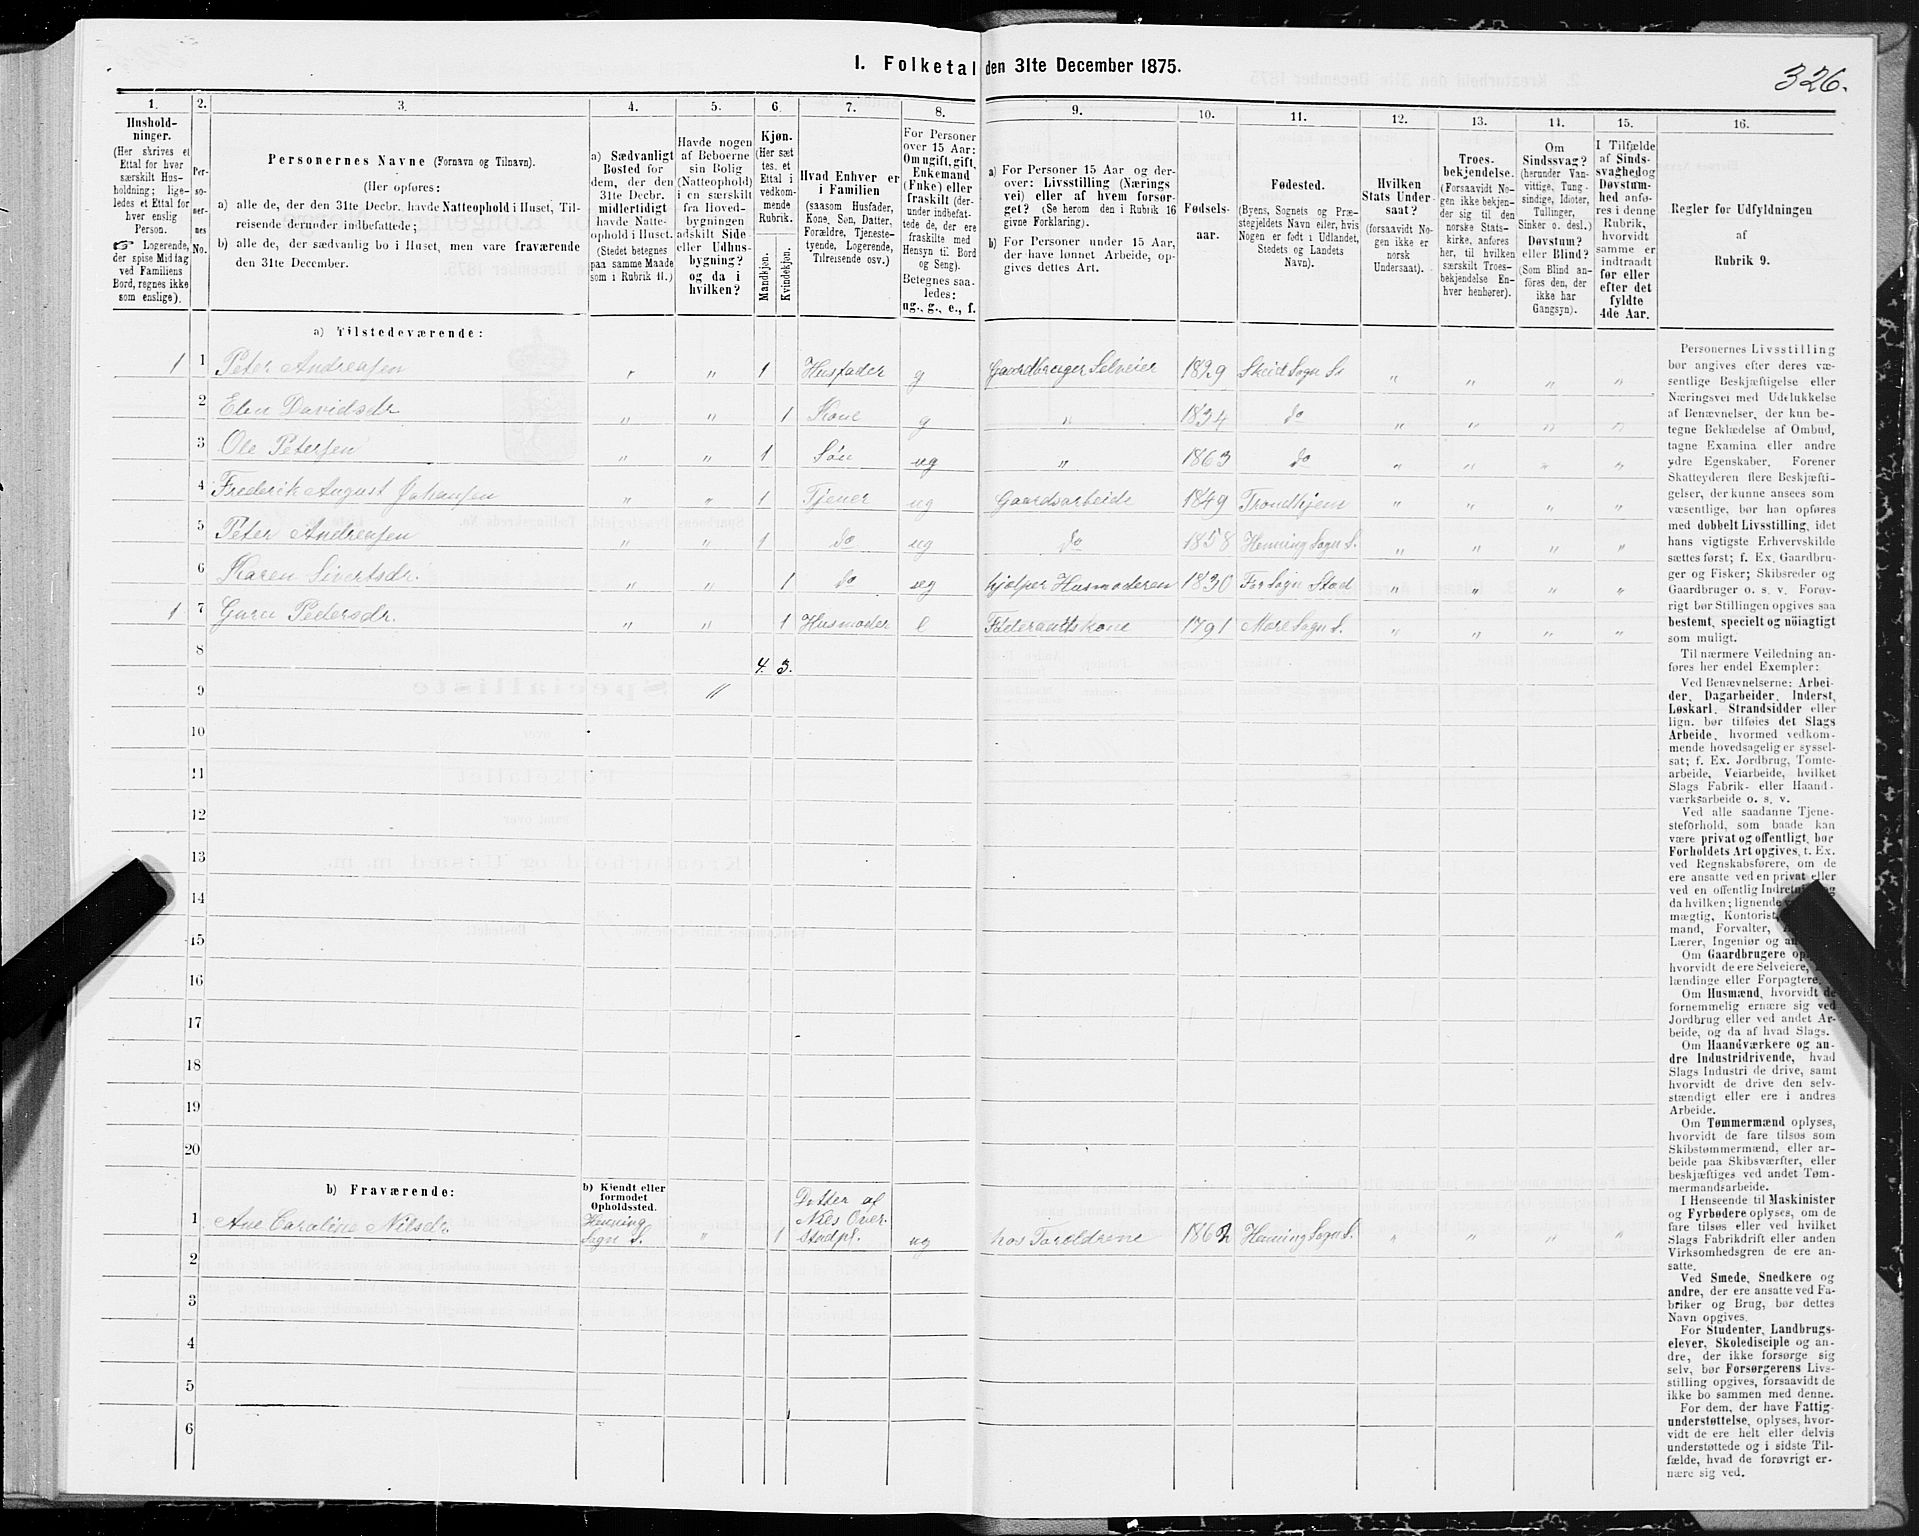 I. Folketal den 31te December 1875.
326.
1. 2. 3. 4. 5. 6. 7. 8. 9. 10. 11. 12. 13. 14. 15. 16.
Hushold-
ninger.
(Her skrives et
Ettal for hver
særskilt Hus-
holdning; lige-
ledes et Ettal for
hver enslig
Person.
☞ Logerende,
der spise Middag
ved Familiens
Bord, regnes ikke
som enslige).
Per-
so-
ner-
nes
No.
Personernes Navne (Fornavn og Tilnavn).
(Her opføres:
a) alle de, der den 31te Decbr. havde Natteophold i Huset, Til-
reisende derunder indbefattede;
b) alle de, der sædvanlig bo i Huset, men vare fraværende
den 31te December.
a) Sædvanligt
Bosted for
dem, der den
31te Decbr.
midlertidigt
havde Natte-
ophold i Huset.
(Stedet betegnes
paa samme Maade
som i Rubrik 11.)
Havde nogen
af Beboerne
sin Bolig
(Natteophold)
i en særskilt
fra Hoved-
bygningen
adskilt Side-
eller Udhus-
bygning?
og da i
hvilken?
Kjøn.
(Her sæt
tes. et
Ettal i
vedkom-
mende
Rubrik.
Mandkjøn.
Kvindekjøn.
Hvad Enhver er
i Familien
(saasom Husfader,
Kone, Søn, Datter,
Forældre, Tjeneste-
tyende, Logerende,
Tilreisende osv.)
For Personer
over 15 Aar:
Om ugift, gift,
Enkemand
(Enke) eller
fraskilt (der-
under indbefat-
tede de, der ere
fraskilte med
Hensyn til Bord
og Seng).
Betegnes saa-
ledes:
ug., g., e., f.
a) For Personer 15 Aar og der-
over: Livsstilling (Nærings
vei) eller af hvem forsør-
get? (Se herom den i Rubrik 16
givne Forklaring).
b) For Personer under 15 Aar,
der have lønnet Arbeide, op-
gives dettes Art.
Fødsels-
aar.
Fødested.
(Byens, Sognets og Præ-
stegjeldets Navn eller, hvis
Nogen er født i Udlandet,
Stedets og Landets
Navn).
Hvilken
Stats Under-
saat?
(forsaavidt No-
gen ikke er
norsk
Undersaat).
Troes-
bekjendelse.
(Forsaavidt No-
gen ikke bekjen-
der sig til den
norske Stats-
kirke, anføres
her, til hvilken
særskilt Troes-
bekjendelse En-
hver henhører).
Om
Sindssvag?
(herunder Van-
vittige, Tung-
sindige, Idioter,
Tullinger,
Sinker o. desl.)
Døvstum?
eller Blind?
(Som Blind an-
føres den, der
ikke har
Gangsyn).
I Tilfælde
af Sinds-
svaghed og
Døvstum-
hed anfø-
res i denne
Rubrik,
hvorvidt
samme er
indtraadt
før eller
efter det
fyldte
4de Aar.
Regler for Udfyldningen
af
Rubrik 9.
a) Tilstedeværende:
1 1 Peter Andreasen " " 1 Husfader g Gaardbruger Selveier 1829 Skeid Sogn S. " " " "
2 Elen Davidsdr " " 1 Kone g " 1834 do " " " "
3 Ole Petersen " " 1 Søn ug " 1863 do " " " "
4 Frederik August Johansen " " 1 Tjener ug Gaardsarbeide 1849 Trondhjem " " " "
5 Peter Andreasen " " 1 do ug do 1858 Henning Sogn S. " " " "
6 Karen Sivertsdr. " " 1 do ug hjælper Husmoderen 1830 For Sogn Stod " " " "
1 7 Guru Pedersdr. " " 1 Husmoder e Føderaadskone 1791 Mære Sogn S. " " " "
8 4. 3.
9 "
10
11
12
13
14
15
16
17
18
19
20
b) Fraværende:
b) Kjendt eller
formodet
Opholdssted.
1 Ane Caroline Nilsdr. Henning Sogn S. " 1 Datter af Nils Over Stadpl. ug hos Foreldrene 1862 Henning Sogn S. " " " "
2
3
4
5
6
Personernes Livsstilling
bør angives efter deres væ-
sentlige Beskjæftigelse eller
Næringsvei med Udelukkelse
af Benævnelser, der kun be-
tegne Beklædelse af Ombud,
tagne Examina eller andre
ydre Egenskaber. Forener
Skatteyderen flere Beskjæfti-
gelser, der kunne ansees som
væsentlige, bør han opføres
med dobbelt Livsstilling, idet
hans vigtigste Erhvervskilde
sættes først; f. Ex. Gaardbru-
ger og Fisker; Skibsreder og
Gaardbruger o. s. v. Forøv-
rigt bør Stillingen opgives saa
bestemt, specielt og nøiagtigt
som muligt.
Til nærmere Veiledning an-
føres her endel Exempler:
Ved Benævnelserne: Arbei-
der, Dagarbeider, Inderst,
Løskarl, Strandsidder eller
lign. bør tilføies det Slags
Arbeide, hvormed vedkom-
mende hovedsagelig er syssel-
sat; f. Ex. Jordbrug, Tomte-
arbeide, Veiarbeide, hvilket
Slags Fabrik- eller Haand-
værksarbeide o. s. v.
Ved alle saadanne Tjene-
steforhold, som baade kan
være privat og offentligt, bør
Forholdets Art opgives, t. Ex.
ved Regnskabsførere, om de
ere ansatte ved en privat eller
ved en offentlig
da hvilken; lignende
mægtig, Kontorist
mand, Forvalter,
Lærer, Ingeniør og
Om Gaardbrugere
hvorvidt de ere Selveiere,
lændinge eller Forpagtere.
Om Husmænd, hvorvidt de
fornemmelig ernære sig ved
Jordbrug eller ved andet Ar-
beide, og da af hvad Slags.
Om Haandværkere og an-
dre Industridrivende, hvad
Slags Industri de drive, samt
hvorvidt de drive den selv-
stændigt eller ere i andres
Arbeide.
Om Tømmermænd oplyses,
hvorvidt de fare tilsøs som
Skibstømmermænd, eller ar-
beide paa Skibsværfter, eller
beskjæftiges ved andet Tøm-
mermandsarbeide.
I Henseende til Maskinister
og Fyrbødere oplyses, om de
fare tilsøs eller ved hvilket
Slags Fabrikdrift eller anden
Virksomhedsgren de ere an-
satte.
Ved Smede, Snedkere og
andre, der ere ansatte ved Fa-
briker og Brug, bør dettes
Navn opgives.
For Studenter, Landbrugs-
elever, Skoledisciple og an-
dre, der ikke forsørge sig
selv, bør Forsørgerens Livs-
stilling opgives, forsaavidt de
ikke bo sammen med denne.
For dem, der have Fattig-
understøttelse, oplyses, hvor-
vidt de ere helt eller delvis
understøttede og i sidste Til-
fælde, hvad de forøvrigt er-
nære sig ved.